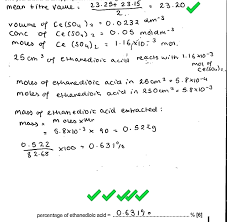 mean titre value : 23.25+23.15 / 2 = 23.20
volume of Ce(SO4)2 = 0.0232 dm-3
conc of Ce(SO4)2 = 0.05 moldm-3
moles of Ce(SO4)2 = 1.16x10-3 mol.
25 cm3 of ethanedioic acid reacts with 1.16x10-3 mol of Ce(SO4)2.
moles of ethanedioic acid in 25cm3 = 5.8x10-4
moles of ethanedioic acid in 250cm3 = 5.8x10-3
mass of ethanedioic acid extracted :
mass = moles x Mr
= 5.8x10-3 x 90 = 0.522g
0.522 / 82.68 x 100 = 0.631%
percentage of ethanedioic acid = 0.631% % [6]